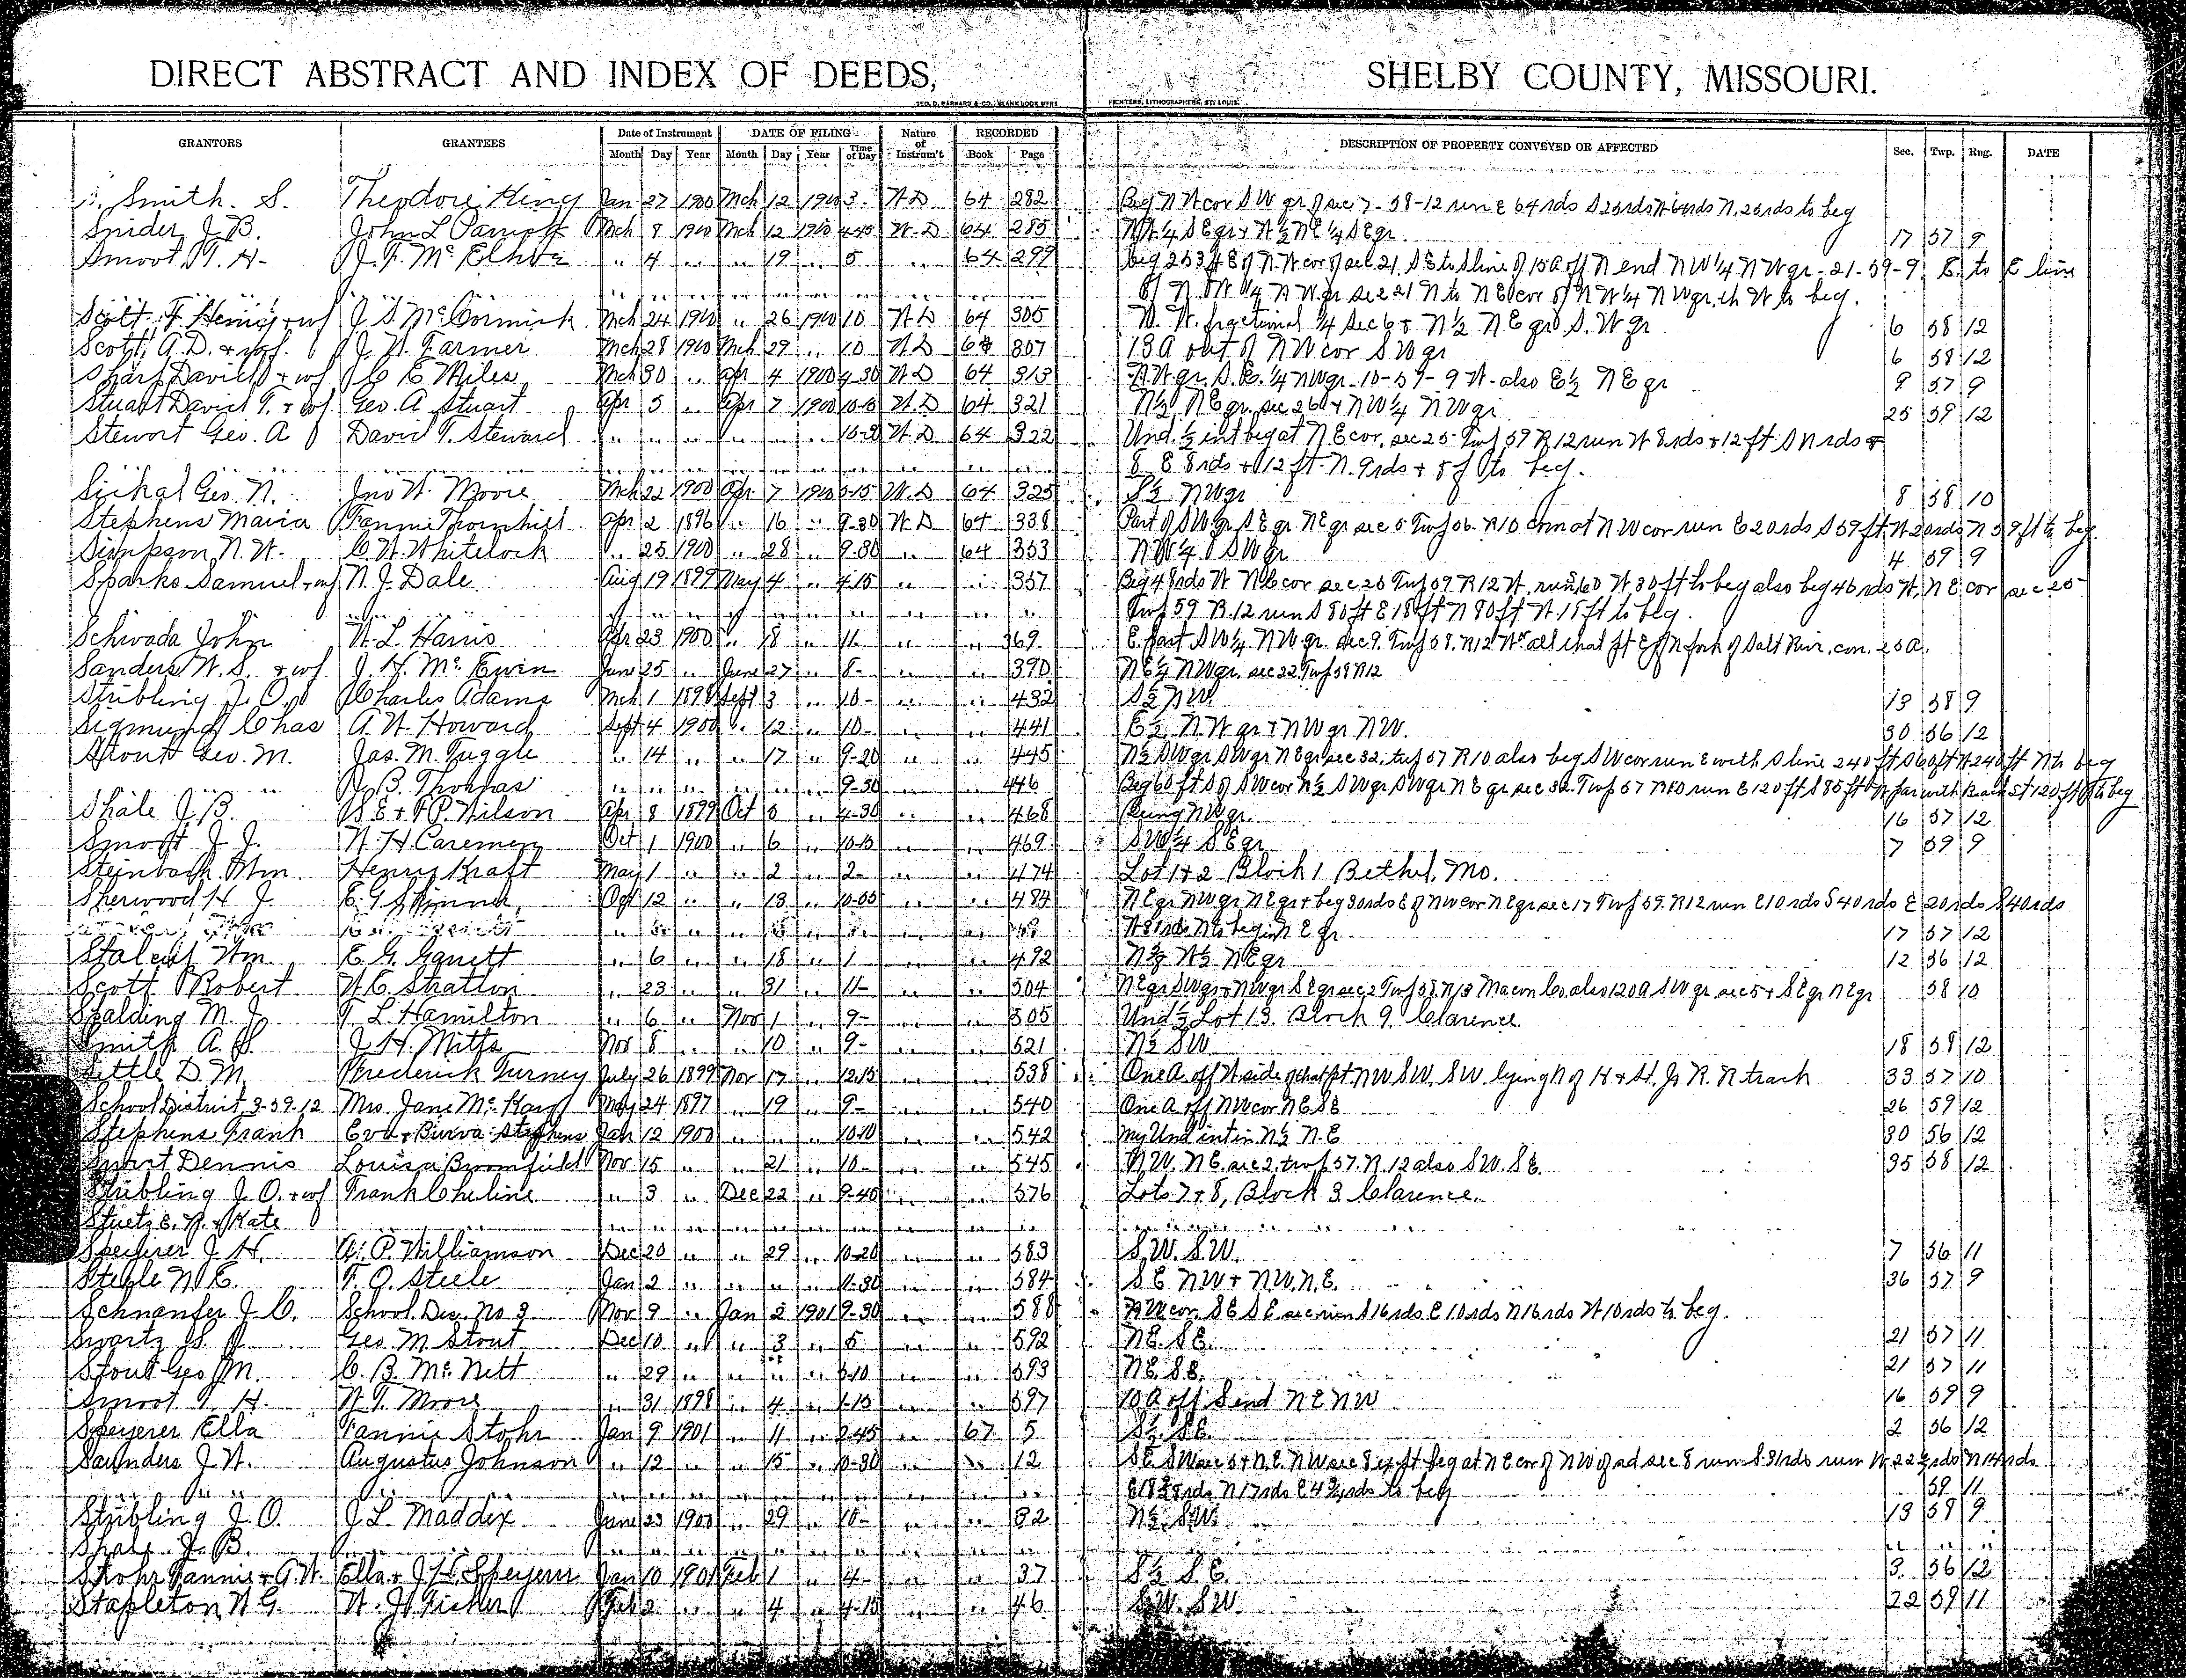 DIRECT ABSTRACT AND INDEX OF DEEDS, SHELBY COUNTY, MISSOURI.
GEO. D. BARNARD & CO., BLANK BOOK MFRS PRINTERS, LITHOGRAPHERS, ST. LOUIS.
GRANTORS GRANTEES Date of Instrument DATE OF FILING Nature of Instrum't RECORDED DESCRIPTION OF PROPERTY CONVEYED OR AFFECTED Sec. Twp. Rng. DATE
Month Day Year Month Day Year Time of Day Book Page
Smith. S. Theodore King Jan 27 1900 Mch 12 1900 3- W D 64 282 Beg N W cor S W qr of sec 7-58-12 run E 64 rds S 25 rds W 64 rds N. 25 rds to beg
Snider J. B. John L Mch 8 1900 Mch 12 1900 4-45 W-D 64 285 N W 1/4 S E qr + W 1/2 N E 1/4 S E qr. 17 57 9
Smoot, T. H- J. F. " 4 " " " 19 " 5 " 64 299 beg 253 ft E of N. W cor of sec 21 S E to S line of 15 A off N end N W 1/4 N W qr - 21-59-9, E. to E line
of N. W 1/4 N W qr sec 21 N to N E cor of N W 1/4 N W qr. th W to beg.
Scott F. Henry + wf J. S. McCormick Mch 24 1900 " 26 1900 10 W D 64 305 N. W. fractional 1/4 Sec 6 + N 1/2 N E qr S. W qr 6 58 12
Scott, A. D. + wf. J. W. Farmer Mch 28 1900 Mch 29 " 10 W D 64 307 13 A out of N W cor S W qr 6 58 12
Sharp David + wf C E Miles Mch 30 " Apr 4 1900 9-30 W D 64 313 N W qr. S. E. 1/4 N W qr - 10-57-9 W - also E 1/2 N E qr 9 57 9
Stuart David T. + wf Geo. A Stuart Apr 5 " Apr 7 1900 10-10 W. D 64 321 N 1/2 N E qr. sec 26 + N W 1/4 N W qr 25 59 12
Stewort Geo. A David T. Steward " " " " " " W D 64 322 Und. 1/2 int beg at N E cor, sec 25 Twp 59 R 12 run W 8 rds + 12 ft S 9 rds +
8 E 8 rds + 12 ft. N. 9 rds + 8 f to beg.
Geo. N. Jno W. Moore Mch 22 1900 Apr 7 1900 3-15 W. D 64 325 S 1/2 N W qr 8 58 10
Stephens Maria Fannie Thornhill Apr 2 1896 " 16 " 9-30 W D 64 338 Part of S W qr S E qr N E qr sec 5 Twp 56 R 10 com at N W cor run E 20 rds S 59 ft. W 20 rds N 59 ft to beg
Simpson N. W. C. W. Whitelock " 25 1900 " 28 " 9-30 " 64 353 N W 1/4 S W qr 4 59 9
Sparks Samuel + wf N. J. Dale Aug 19 1899 May 4 " 4-15 " " 357 Beg 48 rds W N E cor sec 25 Twp 59 R 12 W, run W 30 ft to beg also beg 46 rds W, N E cor sec 25
Twp 59 R. 12 run S 80 ft E 18 ft N 80 ft W 18 ft to beg.
Schwada John W. L. Harris Apr 23 1900 " 18 " 11- " " 369 E. part S W 1/4 N W qr. sec 9. Twp 58. R 12 W. all that pt E of N fork of Salt River, con. 25 a.
Sanders W. S. + wf J. H. McEwin June 25 " June 27 " 8- " " 390 N E 1/4 N W qr. sec 32 Twp 58 R 12
Stribling J. O. Charles Adams Mch 1 1898 Sept 3 " 10- " " 432 S 1/2 N W. 13 58 9
Sigmund Chas A. W. Howard Sept 4 1900 " 12 " 10- " " 441 E 1/2 N W qr + N W qr N W. 30 56 12
Stout Geo. M. Jas. M. Tuggle " 14 " " 17 " 9-20 " " 445 N 1/2 S W qr S W qr N E qr sec 32, twp 57 R 10 also beg S W cor run E with S line 240 ft S 60 ft W 240 ft N to beg
" " J. B. Thomas " " " " " " 9-30 " " 446 Beg 60 ft S of S W cor N 1/2 S W qr S W qr N E qr sec 32. Twp 57 R 10 run E 120 ft S 85 ft W par with 120 ft to beg
Shale J. B. S. E + P. P. Wilson Apr 8 1899 Oct 5 " 4-30 " " 468 Being N W qr. 16 57 12
Smoot J. J. W. H Caremen Oct 1 1900 " 6 " 10-15 " " 469 S W 1/4 S E qr 7 59 9
Steinbach Wm Henry Kraft May 1 " " 2 " 2- " " 474 Lot 1 + 2 Block 1 Bethel, Mo.
Sherwood H. J. E. G. Skinner Oct 12 " " 13 " 10-05 " " 484 N E qr N W qr N E qr + beg 30 rds E of N W cor N E qr sec 17 Twp 57. R 12 run E 10 rds S 40 rds E 20 rds S 40 rds
17 57 12
Stalcup Wm. E. G. Garrett " 6 " " 18 " 1 " " 492 N 1/2 W 1/2 N E qr 12 56 12
Scott Robert W. C. Stratton " 23 " " 31 " 11- " " 504 N E qr S W qr + N W qr S E qr sec 2 Twp 58. R 13 Macon Co also 120 A S W qr sec 5 + S E qr N E qr 58 10
Spalding M. J. T. L. Hamilton " 6 " Nov 1 " 9- " " 505 Und 1/2 Lot 13. Block 9. Clarence
Smith A. S. J. H. Mitts Nov 8 " " 10 " 9- " " 521 N 1/2 S W 18 58 12
Settle D. M. Frederick Turney July 26 1899 Nov 17 " 12.15 " " 538 One A. off W side of that pt. N W S W. S W lying N of H + St. J. R. R track 33 57 10
School District 3-59-12 Mrs. Jane McKay May 24 1897 " 19 " 9- " " 540 One A. off N W cor N E S E 26 59 12
Stephens Frank Eva + Burva Stephens Jan 12 1900 " " " 10-10 " " 542 my Und int in N 1/2 N. E 30 56 12
Smart Dennis Louisa Broomfield Nov 15 " " 21 " 10- " " 545 N W. N E. sec 2. twp 57. R. 12 also S W. S E. 35 58 12
Stribling J. O. + wf Frank Cheline " 3 " Dec 22 " 9-40 " " 576 Lots 7 + 8, Block 3 Clarence.
+ Kate
Speyerer J. H. A. P. Williamson Dec 20 " " 29 " 10-20 " " 583 S. W. S. W. 7 56 11
Steele N. E. F. O. Steele Jan 2 " " " " 11-30 " " 584 S E N W + N W. N. E. 36 57 9
J. C. School Dis. No 3 Nov 9 " Jan 2 1901 9-30 " " 588 N W cor. S E S E sec run S 16 rds E 10 rds N 16 rds W 10 rds to beg.
Swartz S. J. Geo. M Stout Dec 10 " " 3 " 5 " " 592 N E. S E. 21 57 11
Stout Geo. M. C. B. McNett " 29 " " " " " " 593 N E. S E. 21 57 11
Smoot T. H. W. T. Moore " 31 1898 " 4 " 1-15 " " 597 10 A off S end N E N W 16 59 9
Speyerer Ella Fannie Stohr Jan 9 1901 " 11 " 2-45 " 67 5 S 1/2 S E. 2 56 12
Saunders J. W. Augustus Johnson " 12 " " 15 " 10-30 " " 12 S E. S W sec 5 + N. E. N W sec 8 beg at N E cor of N W of sd sec 8 run S. 31 rds run W. 22 1/2 rds N 14 rds
N 17 rds to beg 59 11
Stribling J. O. J. L. Maddix June 23 1900 " 29 " 10- " " 32 N 1/2 S W. 13 58 9
Shale J. B.
Stohr Fannie + A. W. Ella + J. H. Speyerer Jan 10 1901 Feb 1 " 4- " " 37 S 1/2 S. E. 3. 56 12
Stapleton W. G. W. J. Feb 2 " " 4 " 4-15 " " 46 S. W. S W. 22 59 11